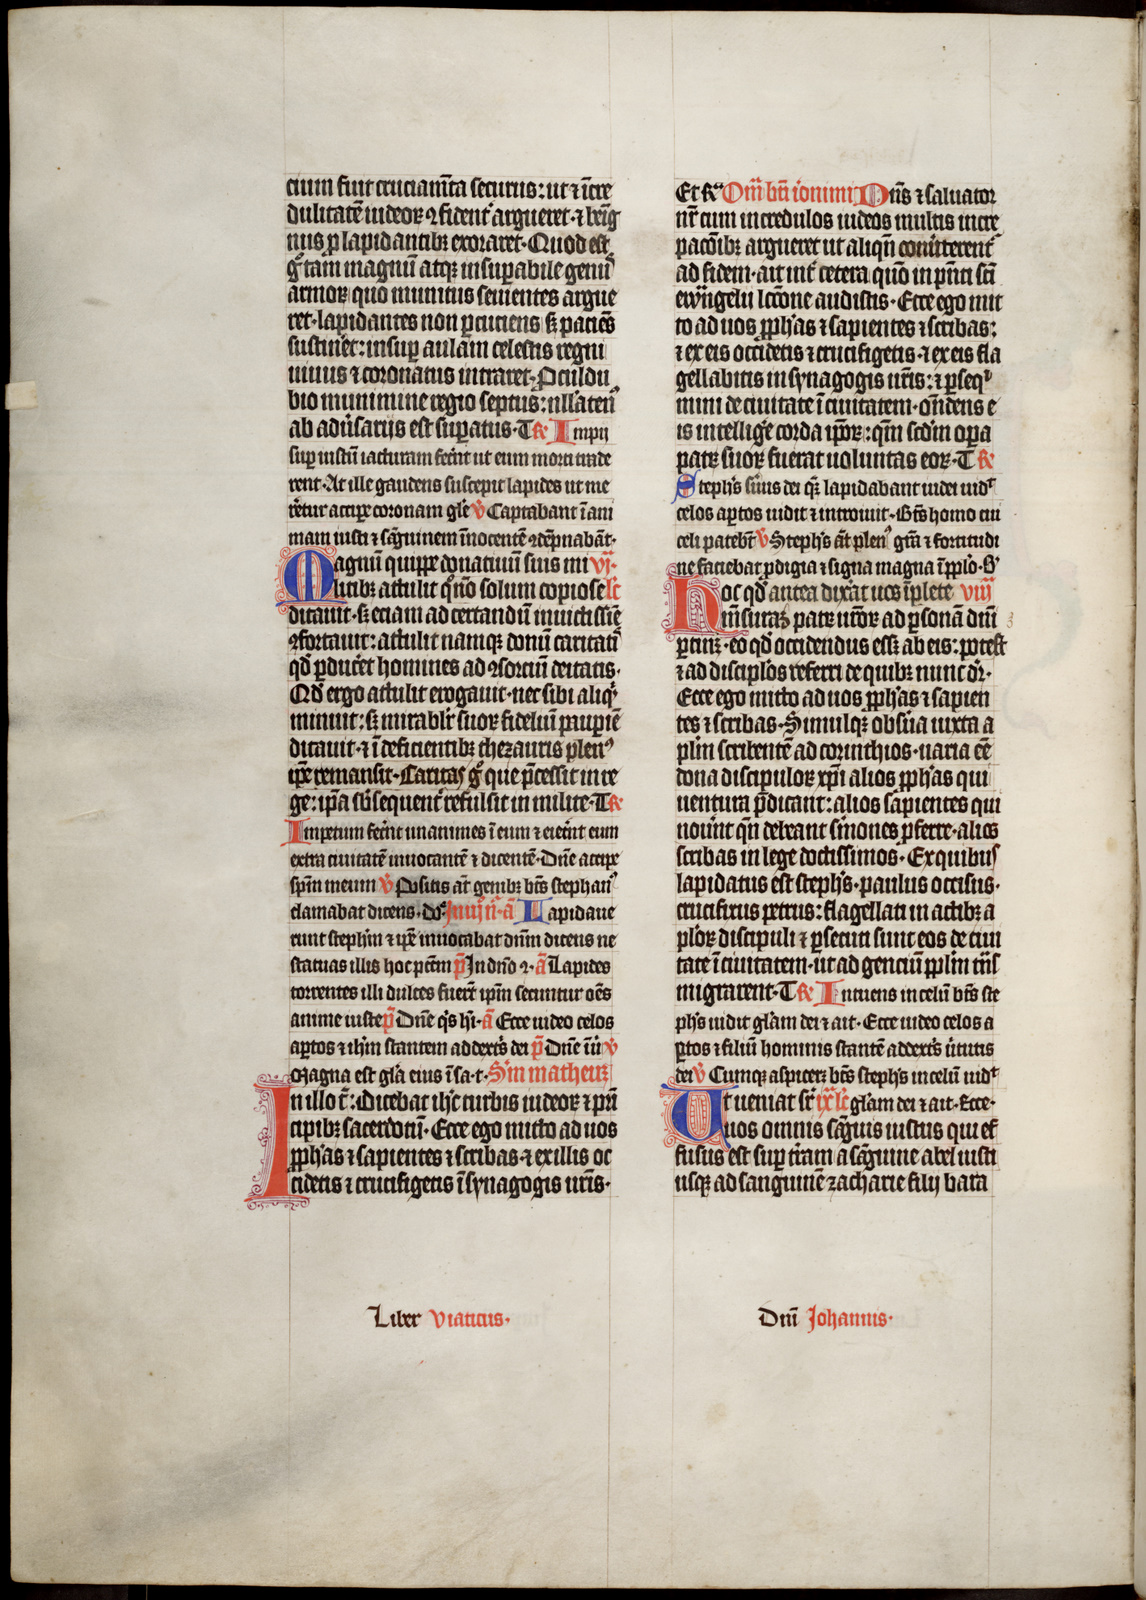 cium fuit cruciam̄ta securus: ut ⁊ ic̄re
dulitatē iudeoꝝ ꝯfident̾ argueret · ⁊ beīg
nius ꝓ lapidantibꝫ exoraret · Quod est
g͛ tam magnū atqꝫ insuꝑabile genꝰ
armoꝝ quo munitus seuientes argue
ret · lapidantes non ꝑcutiens sꝫ paciēs
sustin̄et: insuꝑ aulam celestis regni
uiuus ⁊ coronatus intraret · Proculdu
bio munimine regio septus: nllaten̾
ab adūsarijs est suꝑatus · T ℟ Impij
suꝑ iustū iacturam fecēt ut eum morti trade
rent · At ille gaudens suscepit lapides ut me
rēt̾ur acciꝑe coronam glē ℣ Captabant ī ani
mam iusti ⁊ sāguinem īnocentē ꝯdēpnabāt ·
Magnū quippe donatiuū suis mi vj ·
litibꝫ attulit q̄ nō solum copiose lc̄
ditauit · sꝫ eciam ad certandū inuictissīe
ꝯfortauit: attulit namqꝫ donū caritatꝭ
qd̄ ꝑduc̄et homines ad ꝯsorciū deitatis ·
Qd̄ ergo attulit erogauit · nec sibi aliqͥ
minuit: sꝫ mirabilr̄ suoꝝ fideliū pauꝑiē
ditauit · ⁊ ī deficientibꝫ thezauris plenꝰ
ip̄e remansit · Caritas g͛ que p̄cessit in re
ge: ip̄a sb̄sequent̾ refulsit in milite · T ℟
Impetum fecēt unanimes ī eum ⁊ eiecēt eum
extra ciuitatē inuocantē ⁊ dicentē · Dn̄e acciꝑe
spm̄ meum ℣ Positis āt genibꝫ bt̄s stephanꝰ
clamabat dicens · do͛ · In iij n̄ · ā Lapidaue
runt stephm̄ ⁊ ip̄e inuocabat dn̄m dicens ne
statuas illis hoc pctm̄ p̄ In dn̄o ꝯ · ā Lapides
torrentes illi dulces fuerēt ip̄m secuntur oēs
anime iuste p̄ Dn̄e qͥs hͥ · ā Ecce uideo celos
aꝑtos ⁊ ihm̄ stantem a dextͥs dei p̄ Dn̄e ī ū ℣
Magna est glā eius ī sa · t · Sm̄ matheuꝫ
In illo t̄: Dicebat ihc̄ turbis iudeoꝝ ⁊ pn̄
cipibꝫ sacerdotū · Ecce ego mitto ad uos
ꝓphās ⁊ sapientes ⁊ scribas · ⁊ ex illis oc
cidetis ⁊ crucifigetis ī synagogis ur̄is ·
Et ℟ Om̄ bt̄i ioni mi Dn̄s ⁊ saluator
nr̄ cum incredulos iudeos multis incre
pacōibꝫ argueret ut aliqn̄ conūterent̾
ad fidem · ait int̾ cetera quō in pn̄ti sc̄i
ewāgelij lcc̄one audistis · Ecce ego mit
to ad uos ꝓphās ⁊ sapientes ⁊ scribas:
⁊ ex eis occidetis ⁊ crucifigetis · ⁊ ex eis fla
gellabitis in synagogis ur̄is: ⁊ ꝑseqͥ
mini de ciuitate ī ciuitatem · on̄dens e
is intellig̾e corda ip̄oꝝ: qm̄ scd̄m oꝑa
patꝝ suoꝝ fuerat uoluntas eoꝝ · T ℟
Steph̄s s̾uus dei qꝫ lapidabant iudei uid̾t
celos aꝑtos uidit ⁊ introiuit · Bt̄s homo cui
celi patebt̄ ℣ Steph̄s āt plenꝰ grā ⁊ fortitudi
ne faciebat ꝓdigia ⁊ signa magna ī ppl̄o · Sͥ
Hoc qd̄ antea dixāt uos īplete viij
m̄suraꝫ patꝝ ur̄oꝝ ad ꝑsonā dn̄i
ꝑtinꝫ · eo qd̄ occidendus essꝫ ab eis: potest
⁊ ad discipl̄os referri de quibꝫ nunc dr̄ ·
Ecce ego mitto ad uos ꝓphās ⁊ sapien
tes ⁊ scribas · Simulqꝫ obs̾ua iuxta a
pl̄m scribentē ad corinthios · uaria eē
dona discipuloꝝ xp̄i alios ꝓphās qui
uentura p̄dicant: alios sapientes qui
nouint qn̄ debeant s̾mones ꝓferre · alios
scribas in lege doctissimos · Ex quibus
lapidatus est steph̄s · paulus occisus ·
crucifixus petrus: flagellati in actibꝫ a
pl̄oꝝ discipuli ⁊ ꝑsecuti sunt eos de ciui
tate ī ciuitatem · ut ad genciū ppl̄m tn̄s
migrarent · T ℟ Intuens in celū bt̄s ste
ph̄s uidit glām dei ⁊ ait · Ecce uideo celos a
ꝑtos ⁊ filiū hominis stantē a dextͥs ūtutis
dei ℣ Cumqꝫ aspiceꝫ bt̄s steph̄s in celū uid̾t
Ut ueniat sr̄ ix lc̄ glām dei ⁊ ait · Ecce ·
uos omnis sāguis iustus qui ef
fusus est suꝑ t̾ram a sāguine abel iusti
usqꝫ ad sanguinē zacharie filij bara
Liber Viaticus ·
Dn̄i Johannis ·